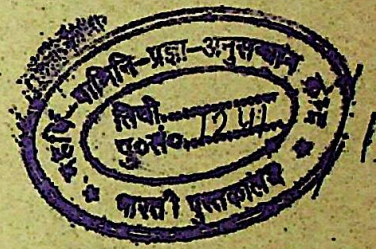 महर्षि-पाणिनि-प्रज्ञा-अनुसन्धान केन्द्र
तिथी..................
पु०सं०...1241...
भारती पुस्तकालय